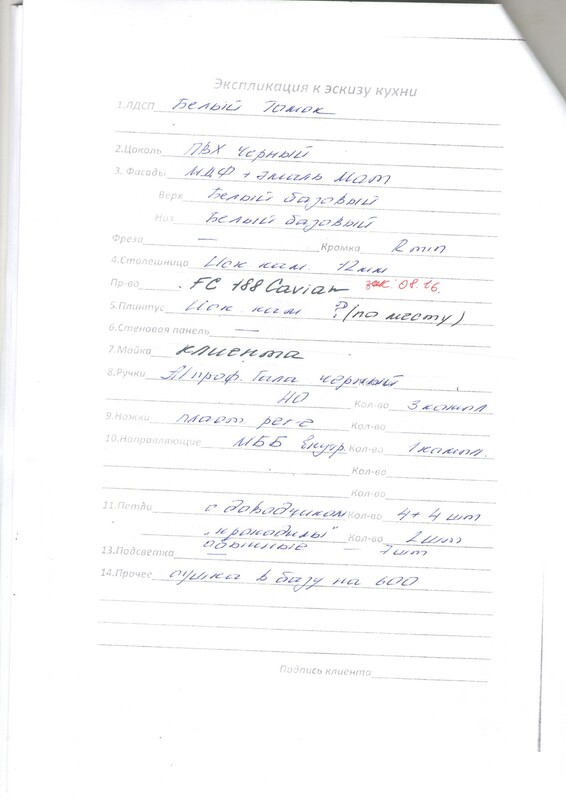 Экспликация к эскизу кухни
1.ЛДСП Белый Гамак
2.Цоколь ПВХ Черный
3. Фасады МДФ + эмаль Мат
Верх Белый базовый
Низ Белый базовый
Фреза — Кромка R min
4.Столешница Иск кам. 12мм
Пр-во FC 188 Caviar зак 08.16.
5.Плинтус Иск кам ? (по месту)
6.Стеновая панель —
7.Мойка клиента
8.Ручки Al проф. Гола черный
НО Кол-во 3 компл
9.Ножки пласт рег-е Кол-во
10.Направляющие МББ внутр. Кол-во 1 компл.
Кол-во
Кол-во
11.Петли с доводчиком Кол-во 4+4 шт
"крокодилы" Кол-во 2 шт
обычные — шт
13.Подсветка —
14.Прочее сушка в базу на 600
Подпись клиента